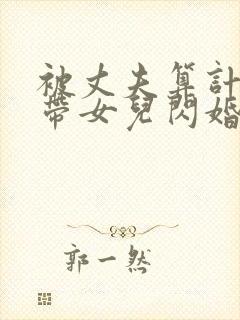 被丈夫算計
帶女兒閃婚
郭一然